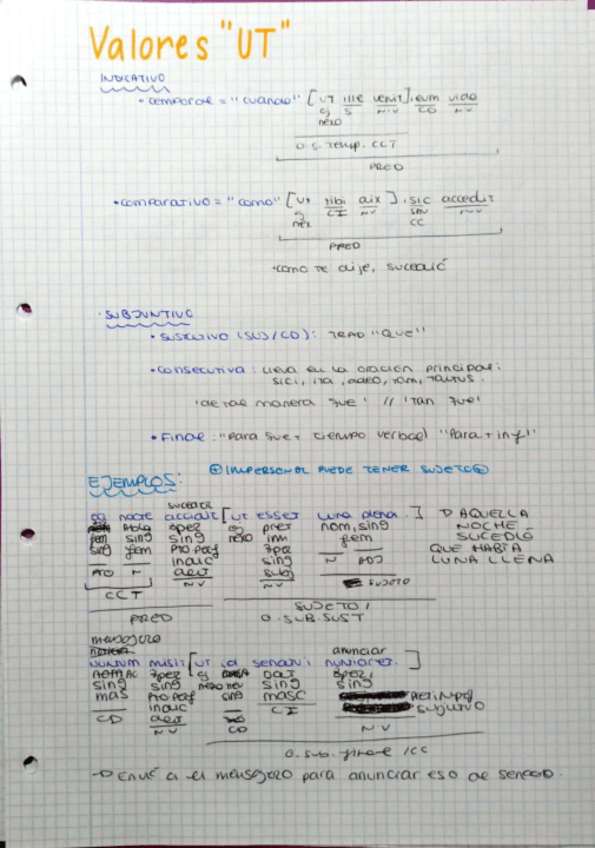 Valores "UT"
INDICATIVO
• temporal = "cuando" [UT ille venit], eum video
cj S NV CD NV
nexo
O.S. Temp. CCT
PRED
• comparativo = "como" [ut tibi dix], sic accedit
cj CI NV NV
nex CC
PRED
• como te dije, sucedió
• SUBJUNTIVO
• SUSTANTIVO (SUJ/CD): TRAD "QUE"
• consecutiva: lleva en la oración principal:
sic, ita, adeo, tam, tantus.
'de tal manera que' // 'tan que'
• Final: "para que + tiempo verbal" "para + inf"
IMPERSONAL PUEDE TENER SUJETO
EJEMPLOS:
suceder
nocte accidit [ut esset luna plena.] AQUELLA
Abla 3ªper cj pret nom, sing NOCHE
fem sing sing nexo im fem SUCEDIÓ
sing fem pto perf 3ªper QUE HABÍA
indic sing N ADJ LUNA LLENA
N act subj SUJETO
NV NV
CCT SUJETO /
PRED O. SUB. SUST
mensajero anunciar
misit [ut id senatui nuntiaret.]
3ªper cj DAT 3ªper
sing sing nexo sing sing
mas pto perf sing masc pret impf
indic CI subjuntivo
CD act
NV CD NV
O. Sub. final / CC
Envié a el mensajero para anunciar eso al senado.